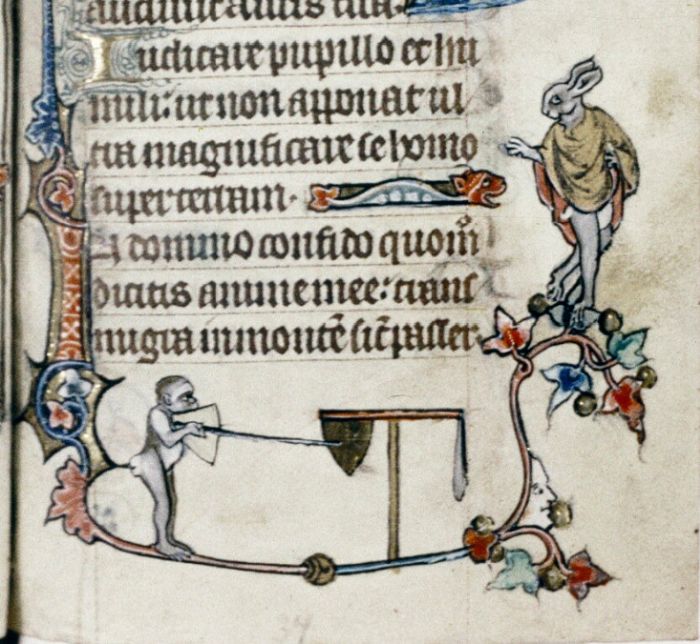 audiuit auris tua.
Iudicare pupillo et hu
mili: ut non apponat ul
tra magnificare se homo
super terram.
In domino confido quomͦ
dicitis anime mee: trans
migra in montē sic̄ passer